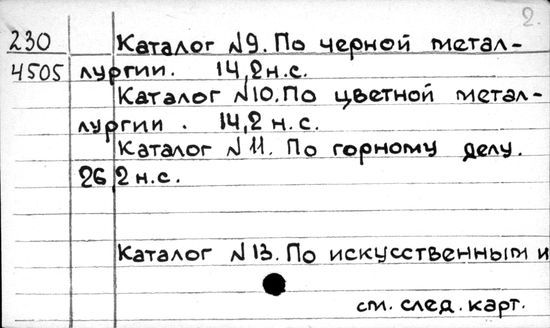 2.
230 Каталог N9. По черной метал-
4505 лургии. 14,2н.с.
Каталог N10. По цветной метал-
лургии. 14,2 н.с.
Каталог N11. По горному делу.
26,2 н.с.
Каталог N13. По искусственным и
см. след. карт.